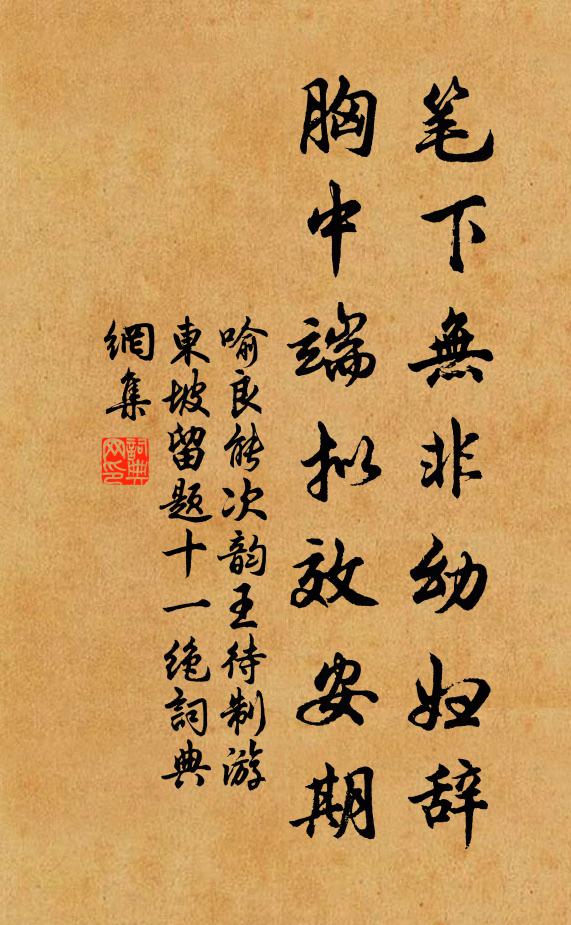 笔下無非幼妇辞
胸中端拟效安期
喻良能次韵王待制游
東坡留题十一绝詞典
網集
詞典
网印